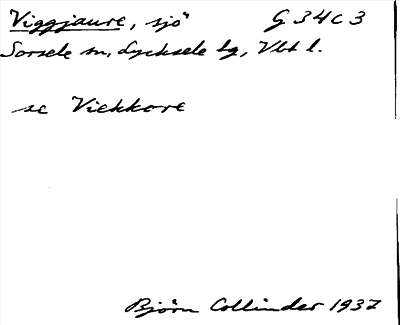 Viggjaure, sjö G 34 C 3
Sorsele sn, Lycksele lg, Vbt l.
se Viekkore
Björn Collinder 1937